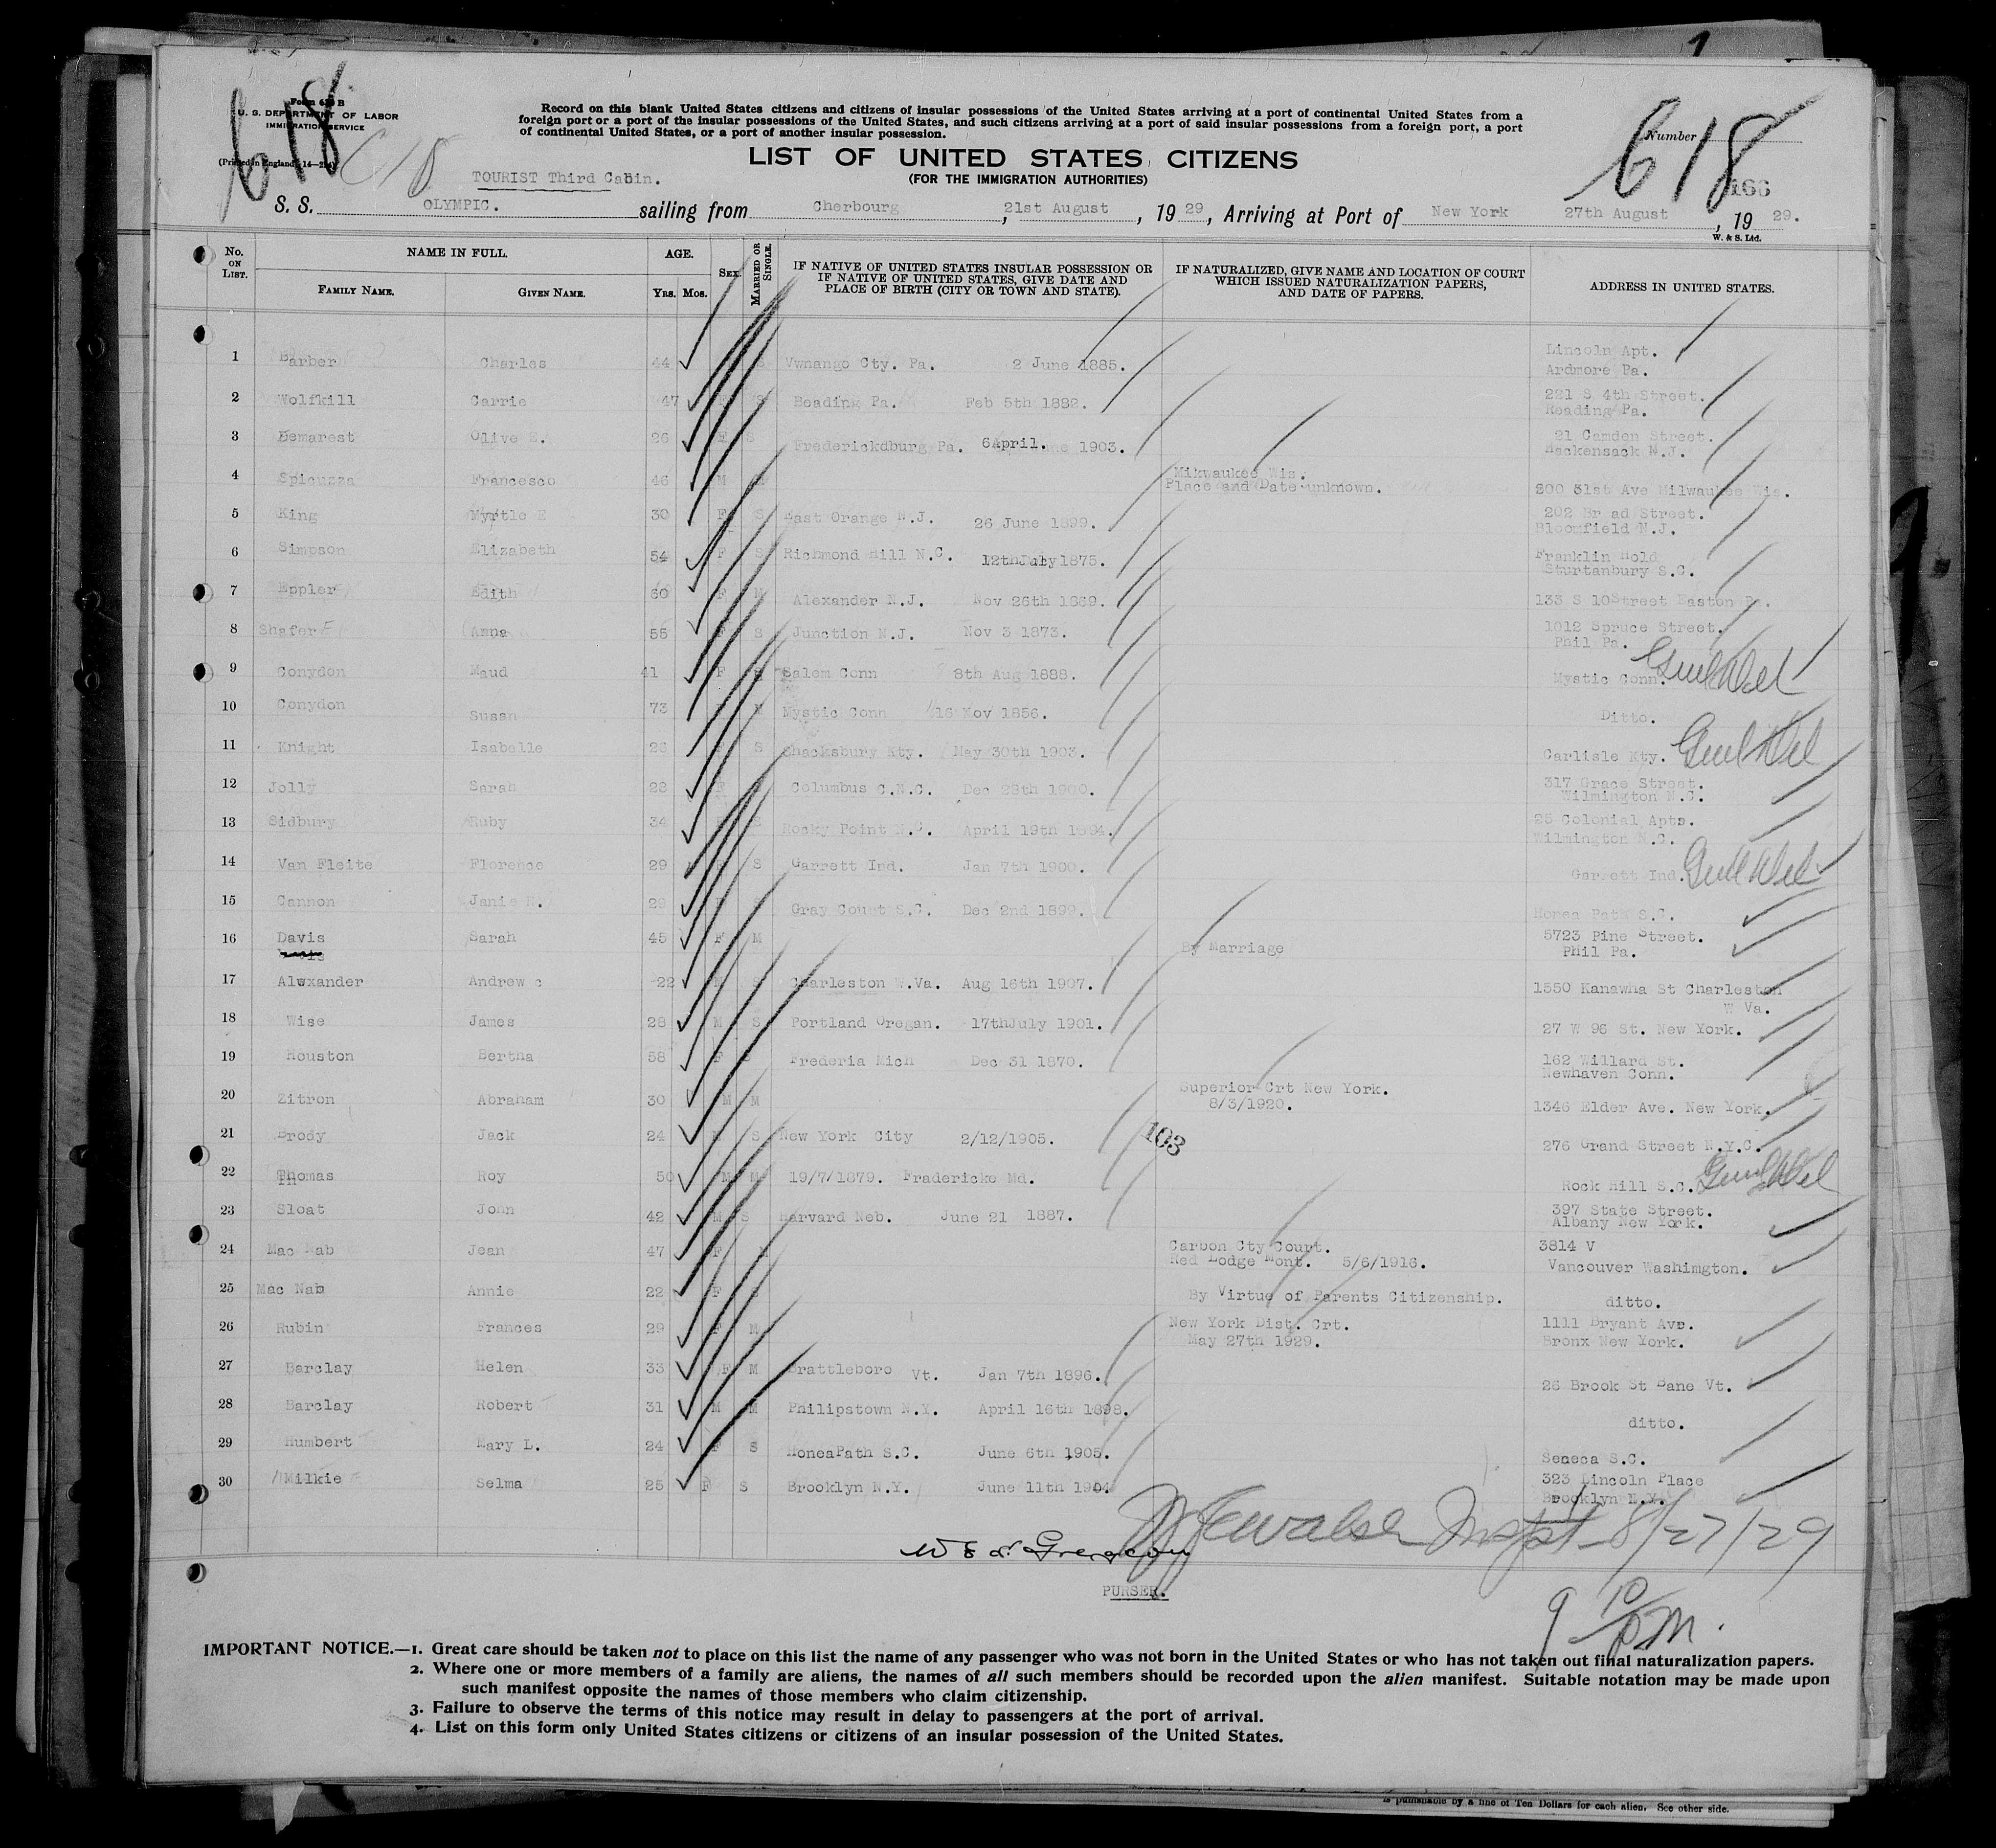 1
618
618
C18
Form 630 B
U. S. DEPARTMENT OF LABOR
IMMIGRATION SERVICE
(Printed in England)
Record on this blank United States citizens and citizens of insular possessions of the United States arriving at a port of continental United States from a
foreign port or a port of the insular possessions of the United States, and such citizens arriving at a port of said insular possessions from a foreign port, a port
of continental United States, or a port of another insular possession.
Number
166
LIST OF UNITED STATES CITIZENS
(FOR THE IMMIGRATION AUTHORITIES)
TOURIST Third Cabin.
S. S. OLYMPIC. sailing from Cherbourg, 21st August, 1929, Arriving at Port of New York 27th August, 1929.
W. & S. Ltd.
No. ON LIST. NAME IN FULL. AGE. SEX. MARRIED OR SINGLE. IF NATIVE OF UNITED STATES INSULAR POSSESSION OR IF NATIVE OF UNITED STATES, GIVE DATE AND PLACE OF BIRTH (CITY OR TOWN AND STATE). IF NATURALIZED, GIVE NAME AND LOCATION OF COURT WHICH ISSUED NATURALIZATION PAPERS, AND DATE OF PAPERS. ADDRESS IN UNITED STATES.
FAMILY NAME. GIVEN NAME. YRS. MOS.
1 Barber Charles 44 S Vwnango Cty. Pa. 2 June 1885. Lincoln Apt. Ardmore Pa.
2 Wolfkill Carrie 47 F S Beading Pa. Feb 5th 1882. 221 S 4th Street. Reading Pa.
3 Demarest Olive E. 26 F S Frederickdburg Pa. 6April. 1903. 21 Camden Street. Hackensack N.J.
4 Spicuzza Francesco 46 M Mikwaukee Wis. Place and Date unknown. 200 31st Ave Milwaukee Wis.
5 King Myrtle E 30 F S East Orange N.J. 26 June 1899. 202 Br ad Street. Bloomfield N.J.
6 Simpson Elizabeth 54 F S Richmond Hill N.C. 12thJuly1875. Franklin Hold Sturtanbury S.C.
7 Eppler Edith 60 F M Alexander N.J. Nov 26th 1869. 133 S 10Street Easton Pa.
8 Shafer Anna 55 F S Junction N.J. Nov 3 1873. 1012 Spruce Street. Phil Pa.
9 Conydon Maud 41 F S Salem Conn 8th Aug 1888. Mystic Conn.
10 Conydon Susan 73 M Mystic Conn 16 Nov 1856. Ditto.
11 Knight Isabelle 26 F S Shacksbury Kty. May 30th 1903. Carlisle Kty.
12 Jolly Sarah 28 F Columbus C.N.C. Dec 28th 1900. 317 Grace Street. Wilmington N.C.
13 Sidbury Ruby 34 S Rocky Point N.C. April 19th 1894. 25 Colonial Apts. Wilmington N.C.
14 Van Fleite Florence 29 S Garrett Ind. Jan 7th 1900. Garrett Ind.
15 Cannon Janie R. 29 F S Gray Court S.C. Dec 2nd 1899. Honea Path S.C.
16 Davis Sarah 45 F M By Marriage 5723 Pine Street. Phil Pa.
17 Alwxander Andrew c 22 M S Charleston W.Va. Aug 16th 1907. 1550 Kanawha St Charleston W Va.
18 Wise James 28 M S Portland Oregan. 17thJuly 1901. 27 W 96 St. New York.
19 Houston Bertha 58 F S Frederia Mich Dec 31 1870. 162 Willard St. Newhaven Conn.
20 Zitron Abraham 30 M M Superior Crt New York. 8/3/1920. 1346 Elder Ave. New York.
21 Brody Jack 24 S New York City 2/12/1905. 103 276 Grand Street N.Y.C.
22 Thomas Roy 50 M M 19/7/1879. Fradericke Md. Rock Hill S.C.
23 Sloat John 42 M S Harvard Neb. June 21 1887. 397 State Street. Albany New York.
24 Mac Nab Jean 47 F M Carbon Cty Court. Red Lodge Mont. 5/6/1916. 3814 V Vancouver Washimgton.
25 Mac Nab Annie 22 F S By Virtue of Parents Citizenship. ditto.
26 Rubin Frances 29 F M New York Dist. Crt. May 27th 1929. 1111 Bryant Ave. Bronx New York.
27 Barclay Helen 33 F M Brattleboro Vt. Jan 7th 1896. 26 Brook St Bane Vt.
28 Barclay Robert 31 M M Philipstown N.Y. April 16th 1898. ditto.
29 Humbert Mary L. 24 F S HoneaPath S.C. June 6th 1905. Seneca S.C.
30 Milkie Selma 25 F S Brooklyn N.Y. June 11th 1904 323 Lincoln Place Brooklyn N.Y.
Inspt 8/27/29
PURSER.
9 10 PM.
IMPORTANT NOTICE.—1. Great care should be taken not to place on this list the name of any passenger who was not born in the United States or who has not taken out final naturalization papers.
2. Where one or more members of a family are aliens, the names of all such members should be recorded upon the alien manifest. Suitable notation may be made upon
such manifest opposite the names of those members who claim citizenship.
3. Failure to observe the terms of this notice may result in delay to passengers at the port of arrival.
4. List on this form only United States citizens or citizens of an insular possession of the United States.
is punishable by a fine of Ten Dollars for each alien. See other side.